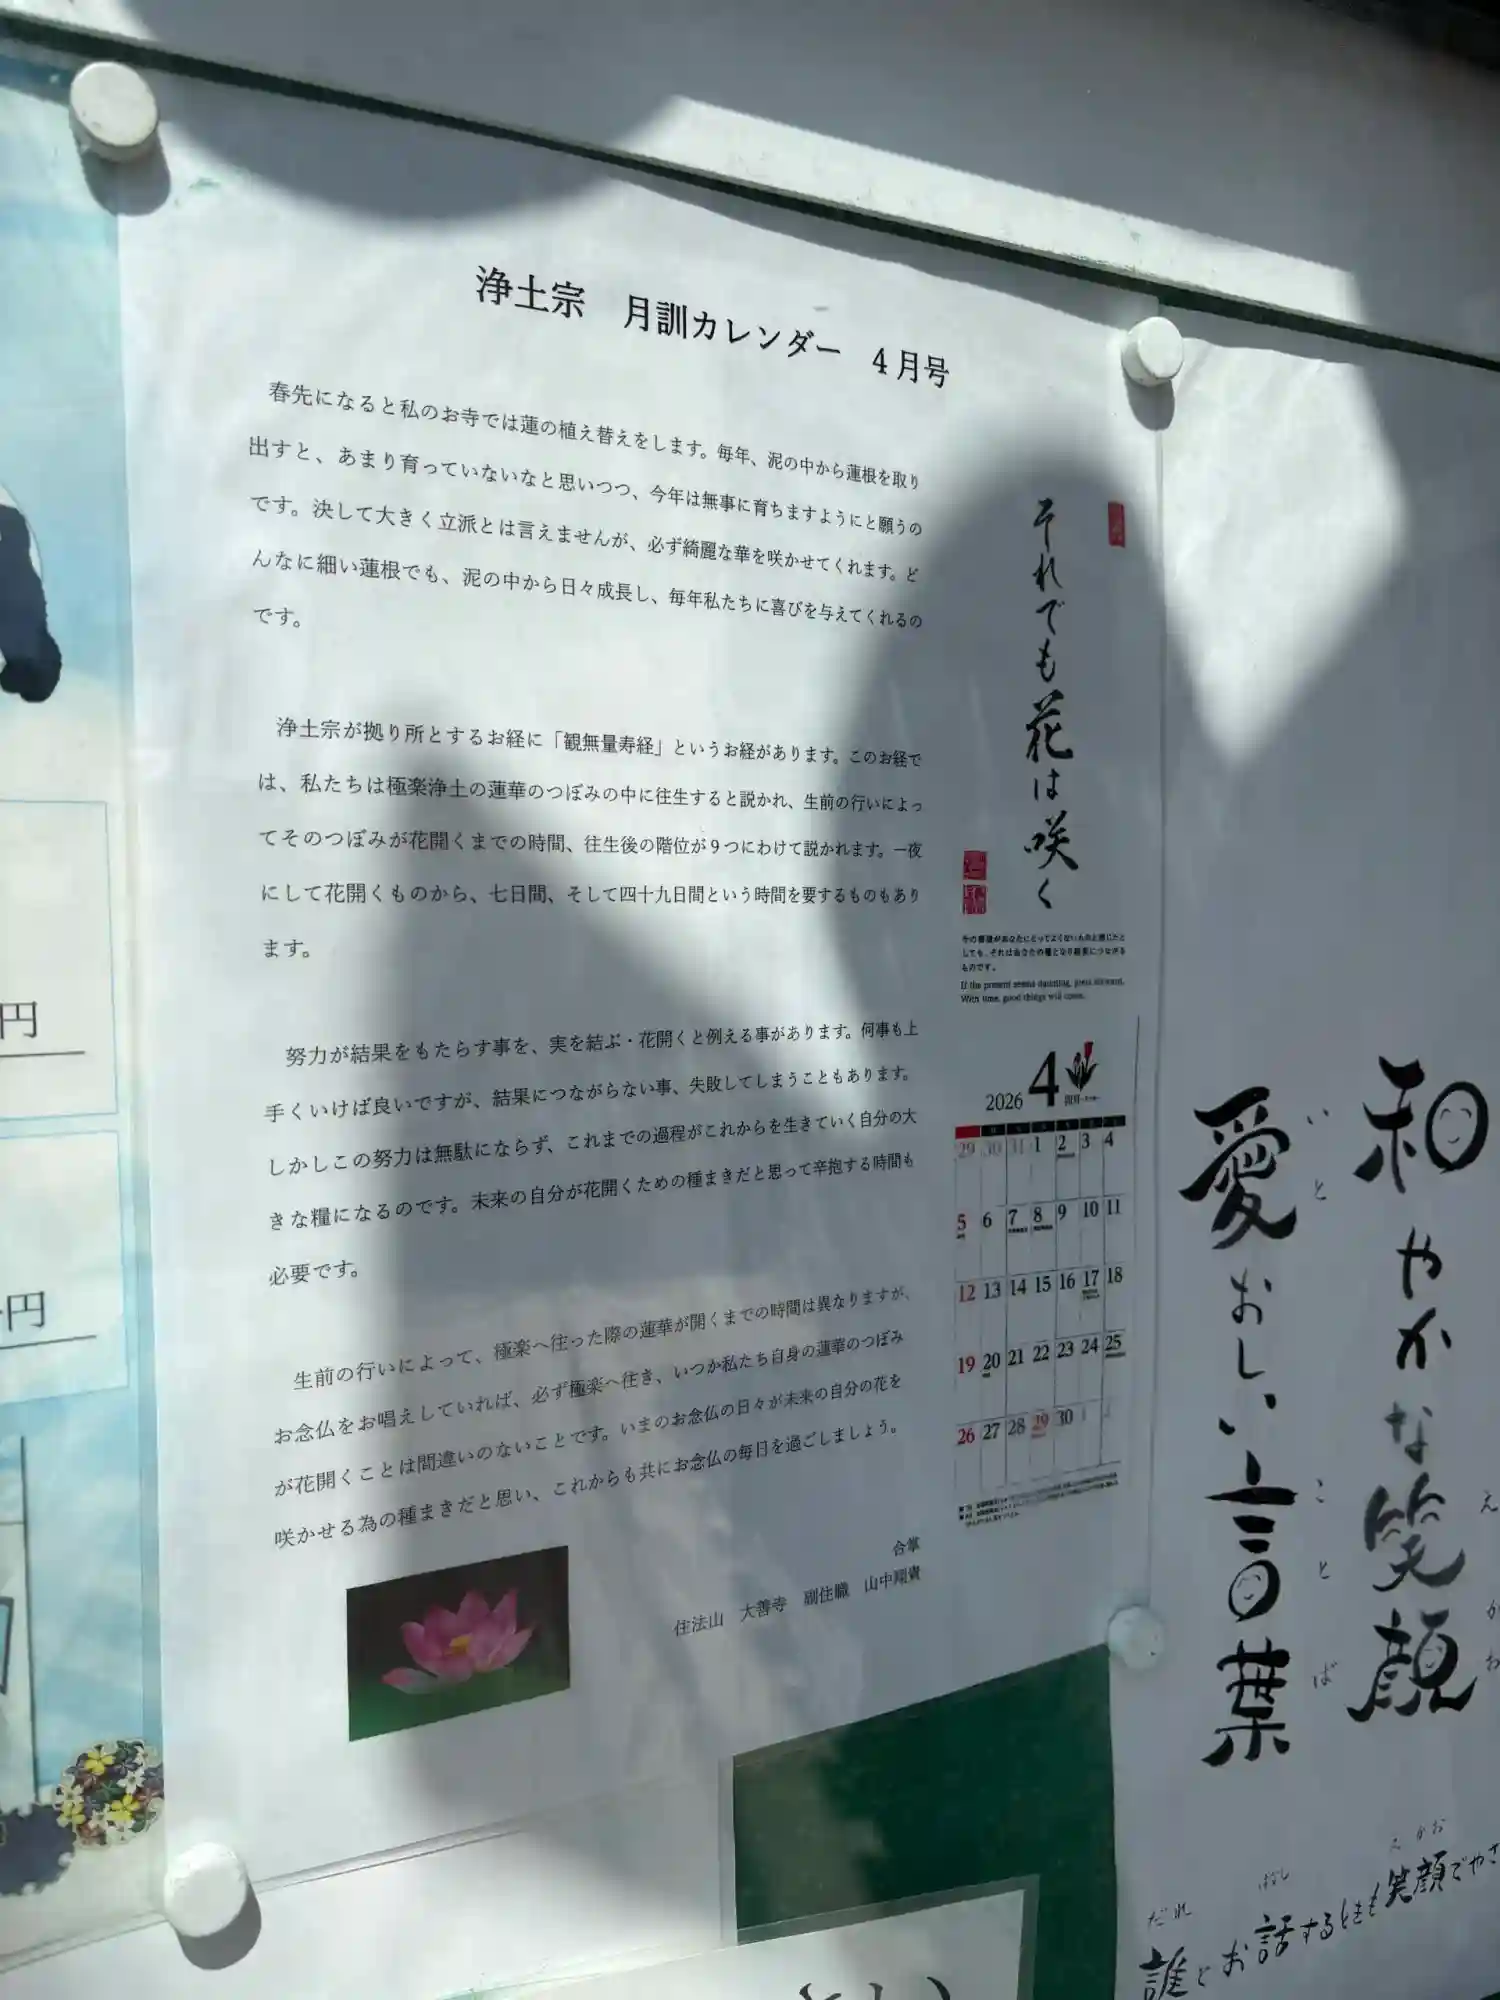 浄土宗　月訓カレンダー　４月号
春先になると私のお寺では蓮の植え替えをします。毎年、泥の中から蓮根を取り
出すと、あまり育っていないなと思いつつ、今年は無事に育ちますようにと願うの
です。決して大きく立派とは言えませんが、必ず綺麗な華を咲かせてくれます。ど
んなに細い蓮根でも、泥の中から日々成長し、毎年私たちに喜びを与えてくれるの
です。
浄土宗が拠り所とするお経に「観無量寿経」というお経があります。このお経で
は、私たちは極楽浄土の蓮華のつぼみの中に往生すると説かれ、生前の行いによっ
てそのつぼみが花開くまでの時間、往生後の階位が９つにわけて説かれます。一夜
にして花開くものから、七日間、そして四十九日間という時間を要するものもあり
ます。
努力が結果をもたらす事を、実を結ぶ・花開くと例える事があります。何事も上
手くいけば良いですが、結果につながらない事、失敗してしまうこともあります。
しかしこの努力は無駄にならず、これまでの過程がこれからを生きていく自分の大
きな糧になるのです。未来の自分が花開くための種まきだと思って辛抱する時間も
必要です。
生前の行いによって、極楽へ往った際の蓮華が開くまでの時間は異なりますが、
お念仏をお唱えしていれば、必ず極楽へ往き、いつか私たち自身の蓮華のつぼみ
が花開くことは間違いのないことです。いまのお念仏の日々が未来の自分の花を
咲かせる為の種まきだと思い、これからも共にお念仏の毎日を過ごしましょう。
合掌
住法山　大善寺　副住職　山中翔貴
それでも花は咲く
今の環境があなたにとってよくないものと感じたと
しても、それはあなたの糧となり結果につながる
ものです。
If the present seems daunting, press onward.
With time, good things will come.
2026 4
29 30 31 1 2 3 4
5 6 7 8 9 10 11
12 13 14 15 16 17 18
19 20 21 22 23 24 25
26 27 28 29 30 1 2
和やかな笑顔
えがお
愛おしい言葉
いと　ことば
だれ　はなし　えがお
誰とお話するときも笑顔でやさ
円
円